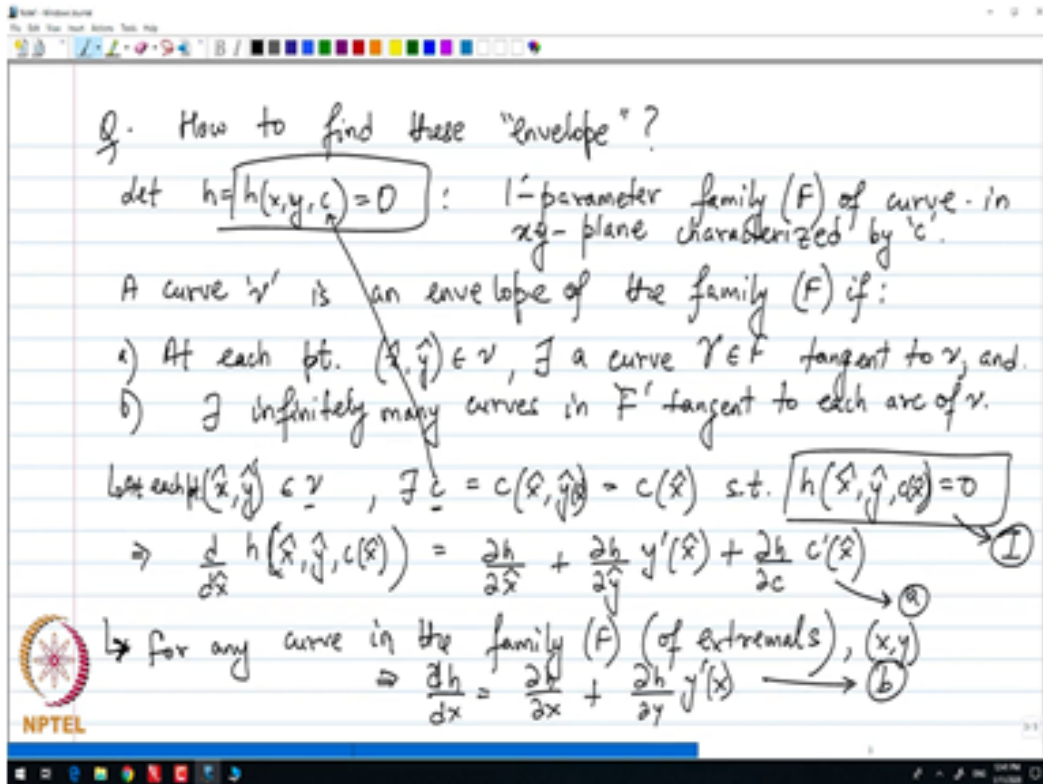 Q. How to find these "envelope" ?
det h = h(x,y,c) = 0 : 1-parameter family (F) of curve in
xy-plane characterized by 'c'.
A curve 'ν' is an envelope of the family (F) if :
a) At each pt. (x̂, ŷ) ∈ ν, ∃ a curve γ ∈ F tangent to ν, and
b) ∃ infinitely many curves in 'F' tangent to each arc of ν.
At each pt (x̂, ŷ) ∈ ν , ∃ c = c(x̂, ŷ(x̂)) = c(x̂) s.t. h(x̂, ŷ, c(x̂)) = 0
I
⇒ d/dx̂ h(x̂, ŷ, c(x̂)) = ∂h/∂x̂ + ∂h/∂ŷ y'(x̂) + ∂h/∂c c'(x̂)
a
↳ for any curve in the family (F) (of extremals), (x,y)
⇒ dh/dx = ∂h/∂x + ∂h/∂y y'(x) → b
NPTEL